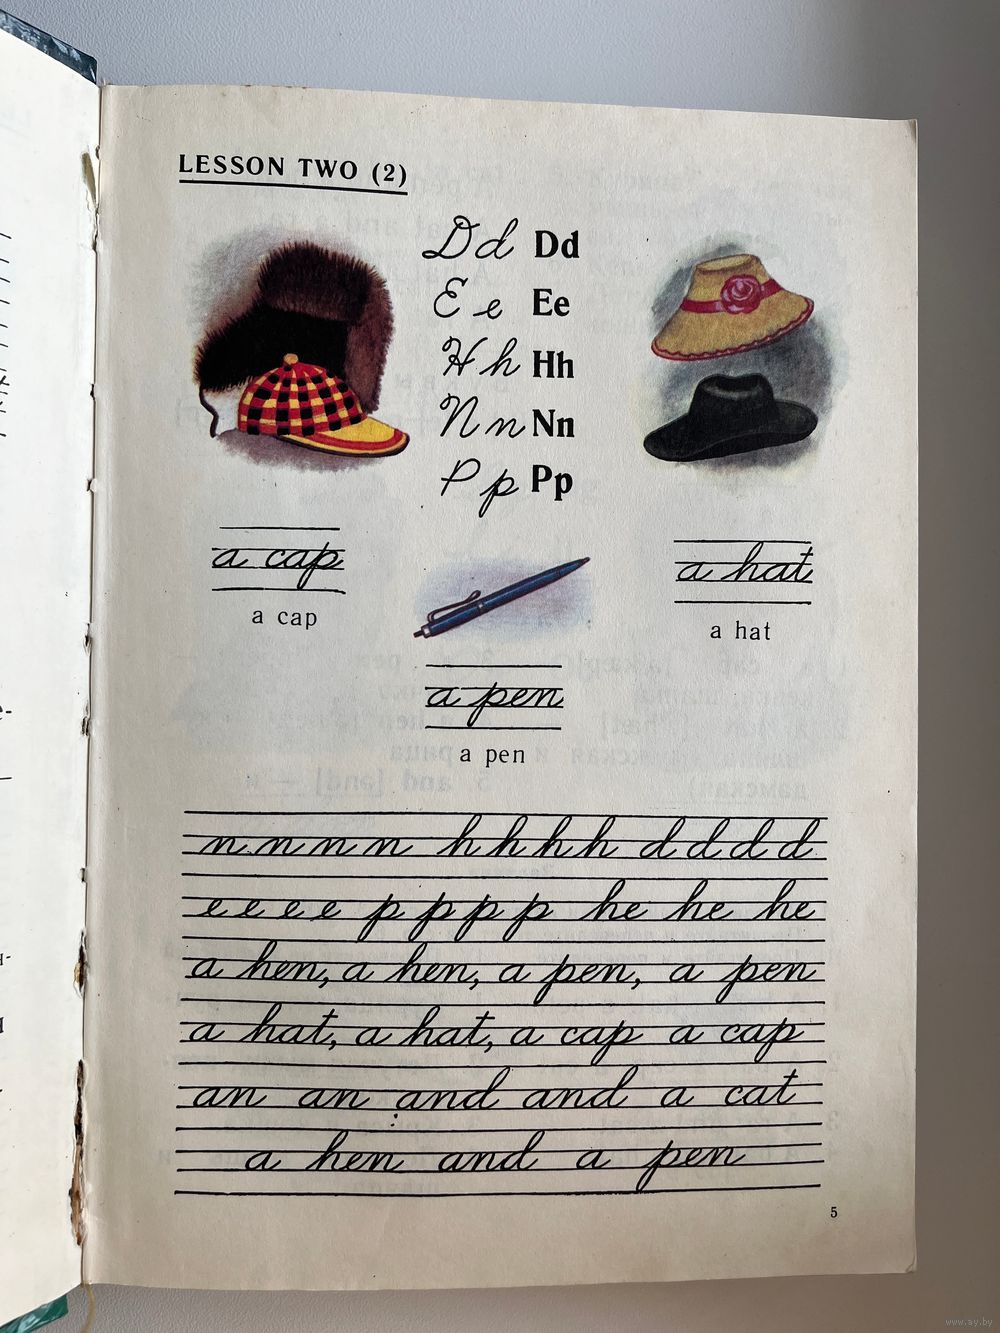 LESSON TWO (2)
Dd Dd
Ee Ee
Hh Hh
Nn Nn
Pp Pp
a cap
a cap
a hat
a hat
a pen
a pen
n n n n h h h h d d d d
e e e e p p p p he he he
a hen, a hen, a pen, a pen
a hat, a hat, a cap a cap
an an and and a cat
a hen and a pen
5
www.ay.by